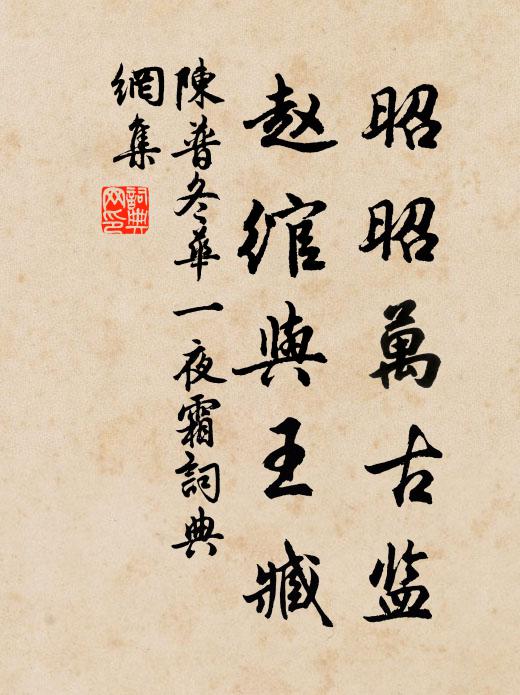 昭昭萬古监
赵绾與王臧
陳普冬華一夜霜詞典
網集
詞典網印